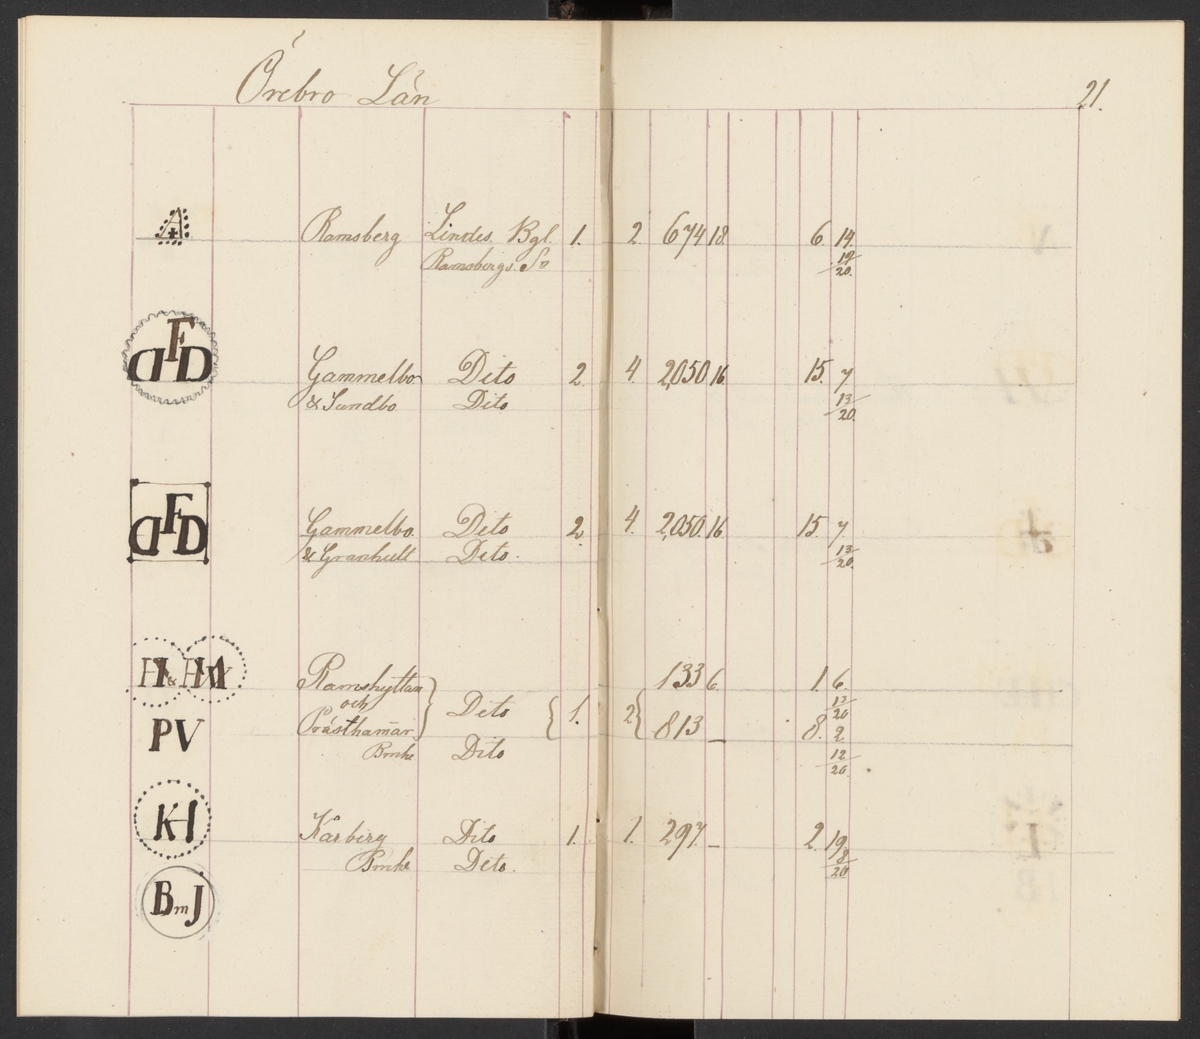 Örebro Län
21.
A Ramsberg Lindes. Bgl. 1. 2 674 18. 6. 14.
Ramsbergs. Sn 19/20.
DFD Gammelbo Dito 2. 4. 2,050. 16. 15. 7
& Sundbo Dito 13/20.
DFD Gammelbo Dito 2. 4. 2,050. 16. 15. 7.
& Granhult Dito. 13/20.
Ramshyttan 133 6. 1. 6.
och Dito 1. 2 13/20
PV Prästhamar 813 — 8. 2.
Bruke Dito 12/20
KH Kårberg Dito 1. 1. 297. — 2. 19.
Bruke Dito. 8/20
BmJ